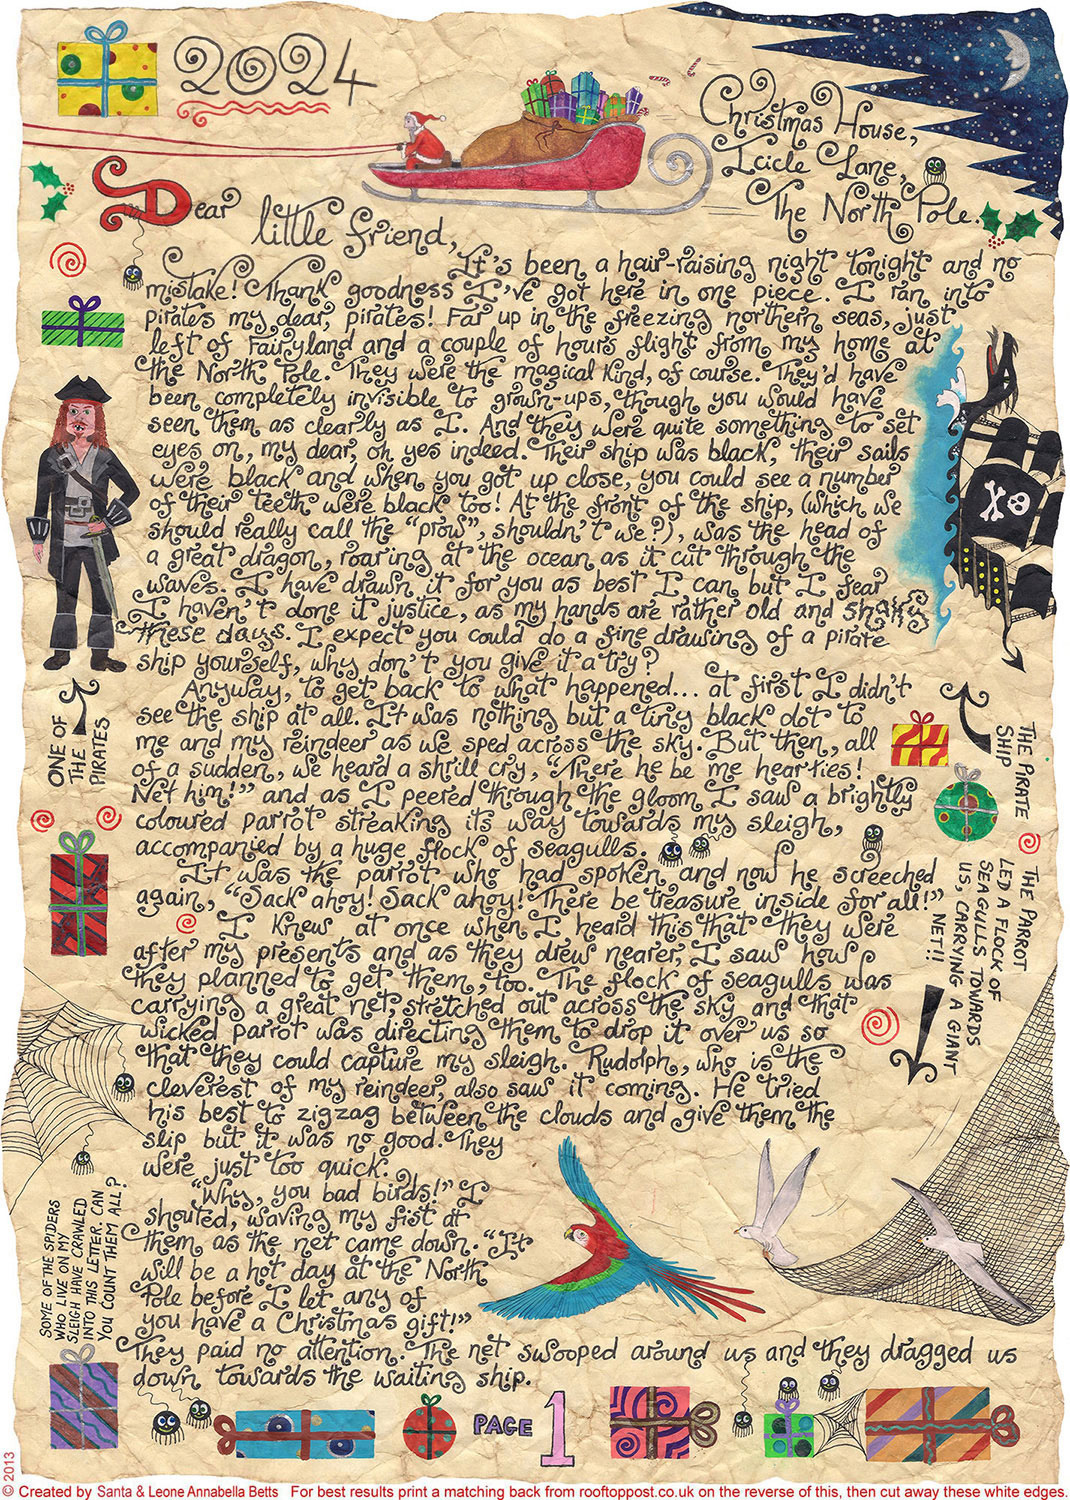 2024
Christmas House,
Icicle Lane,
The North Pole.
Dear
little friend,
It's been a hair-raising night tonight and no
mistake! Thank goodness I've got here in one piece. I ran into
pirates my dear, pirates! Far up in the freezing northern seas, just
left of Fairyland and a couple of hours flight from my home at
the North Pole. They were the magical kind, of course. They'd have
been completely invisible to grown-ups, though you would have
seen them as clearly as I. And they were quite something to set
eyes on, my dear, oh yes indeed. Their ship was black, their sails
were black and when you got up close, you could see a number
of their teeth were black too! At the front of the ship, (which we
should really call the "prow", shouldn't we?), was the head of
a great dragon, roaring at the ocean as it cut through the
waves. I have drawn it for you as best I can but I fear
I haven't done it justice, as my hands are rather old and shaky
these days. I expect you could do a fine drawing of a pirate
ship yourself, why don't you give it a try?
Anyway, to get back to what happened... at first I didn't
see the ship at all. It was nothing but a tiny black dot to
me and my reindeer as we sped across the sky. But then, all
of a sudden, we heard a shrill cry, "There he be me hearties!
Net him!" and as I peered through the gloom I saw a brightly
coloured parrot streaking its way towards my sleigh,
accompanied by a huge flock of seagulls.
It was the parrot who had spoken and now he screeched
again, "Sack ahoy! Sack ahoy! There be treasure inside for all!"
I knew at once when I heard this that they were
after my presents and as they drew nearer, I saw how
they planned to get them, too. The flock of seagulls was
carrying a great net, stretched out across the sky and that
wicked parrot was directing them to drop it over us so
that they could capture my sleigh. Rudolph, who is the
cleverest of my reindeer, also saw it coming. He tried
his best to zigzag between the clouds and give them the
slip but it was no good. They
were just too quick.
"Why, you bad birds!" I
shouted, waving my fist at
them as the net came down. "It
will be a hot day at the North
Pole before I let any of
you have a Christmas gift!"
They paid no attention. The net swooped around us and they dragged us
down towards the waiting ship.
ONE OF
THE
PIRATES
THE PIRATE
SHIP
THE PARROT
LED A FLOCK OF
SEAGULLS TOWARDS
US, CARRYING A GIANT
NET!!
SOME OF THE SPIDERS
WHO LIVE ON MY
SLEIGH HAVE CRAWLED
INTO THIS LETTER. CAN
YOU COUNT THEM ALL?
PAGE 1
© 2013
© Created by Santa & Leone Annabella Betts For best results print a matching back from rooftoppost.co.uk on the reverse of this, then cut away these white edges.